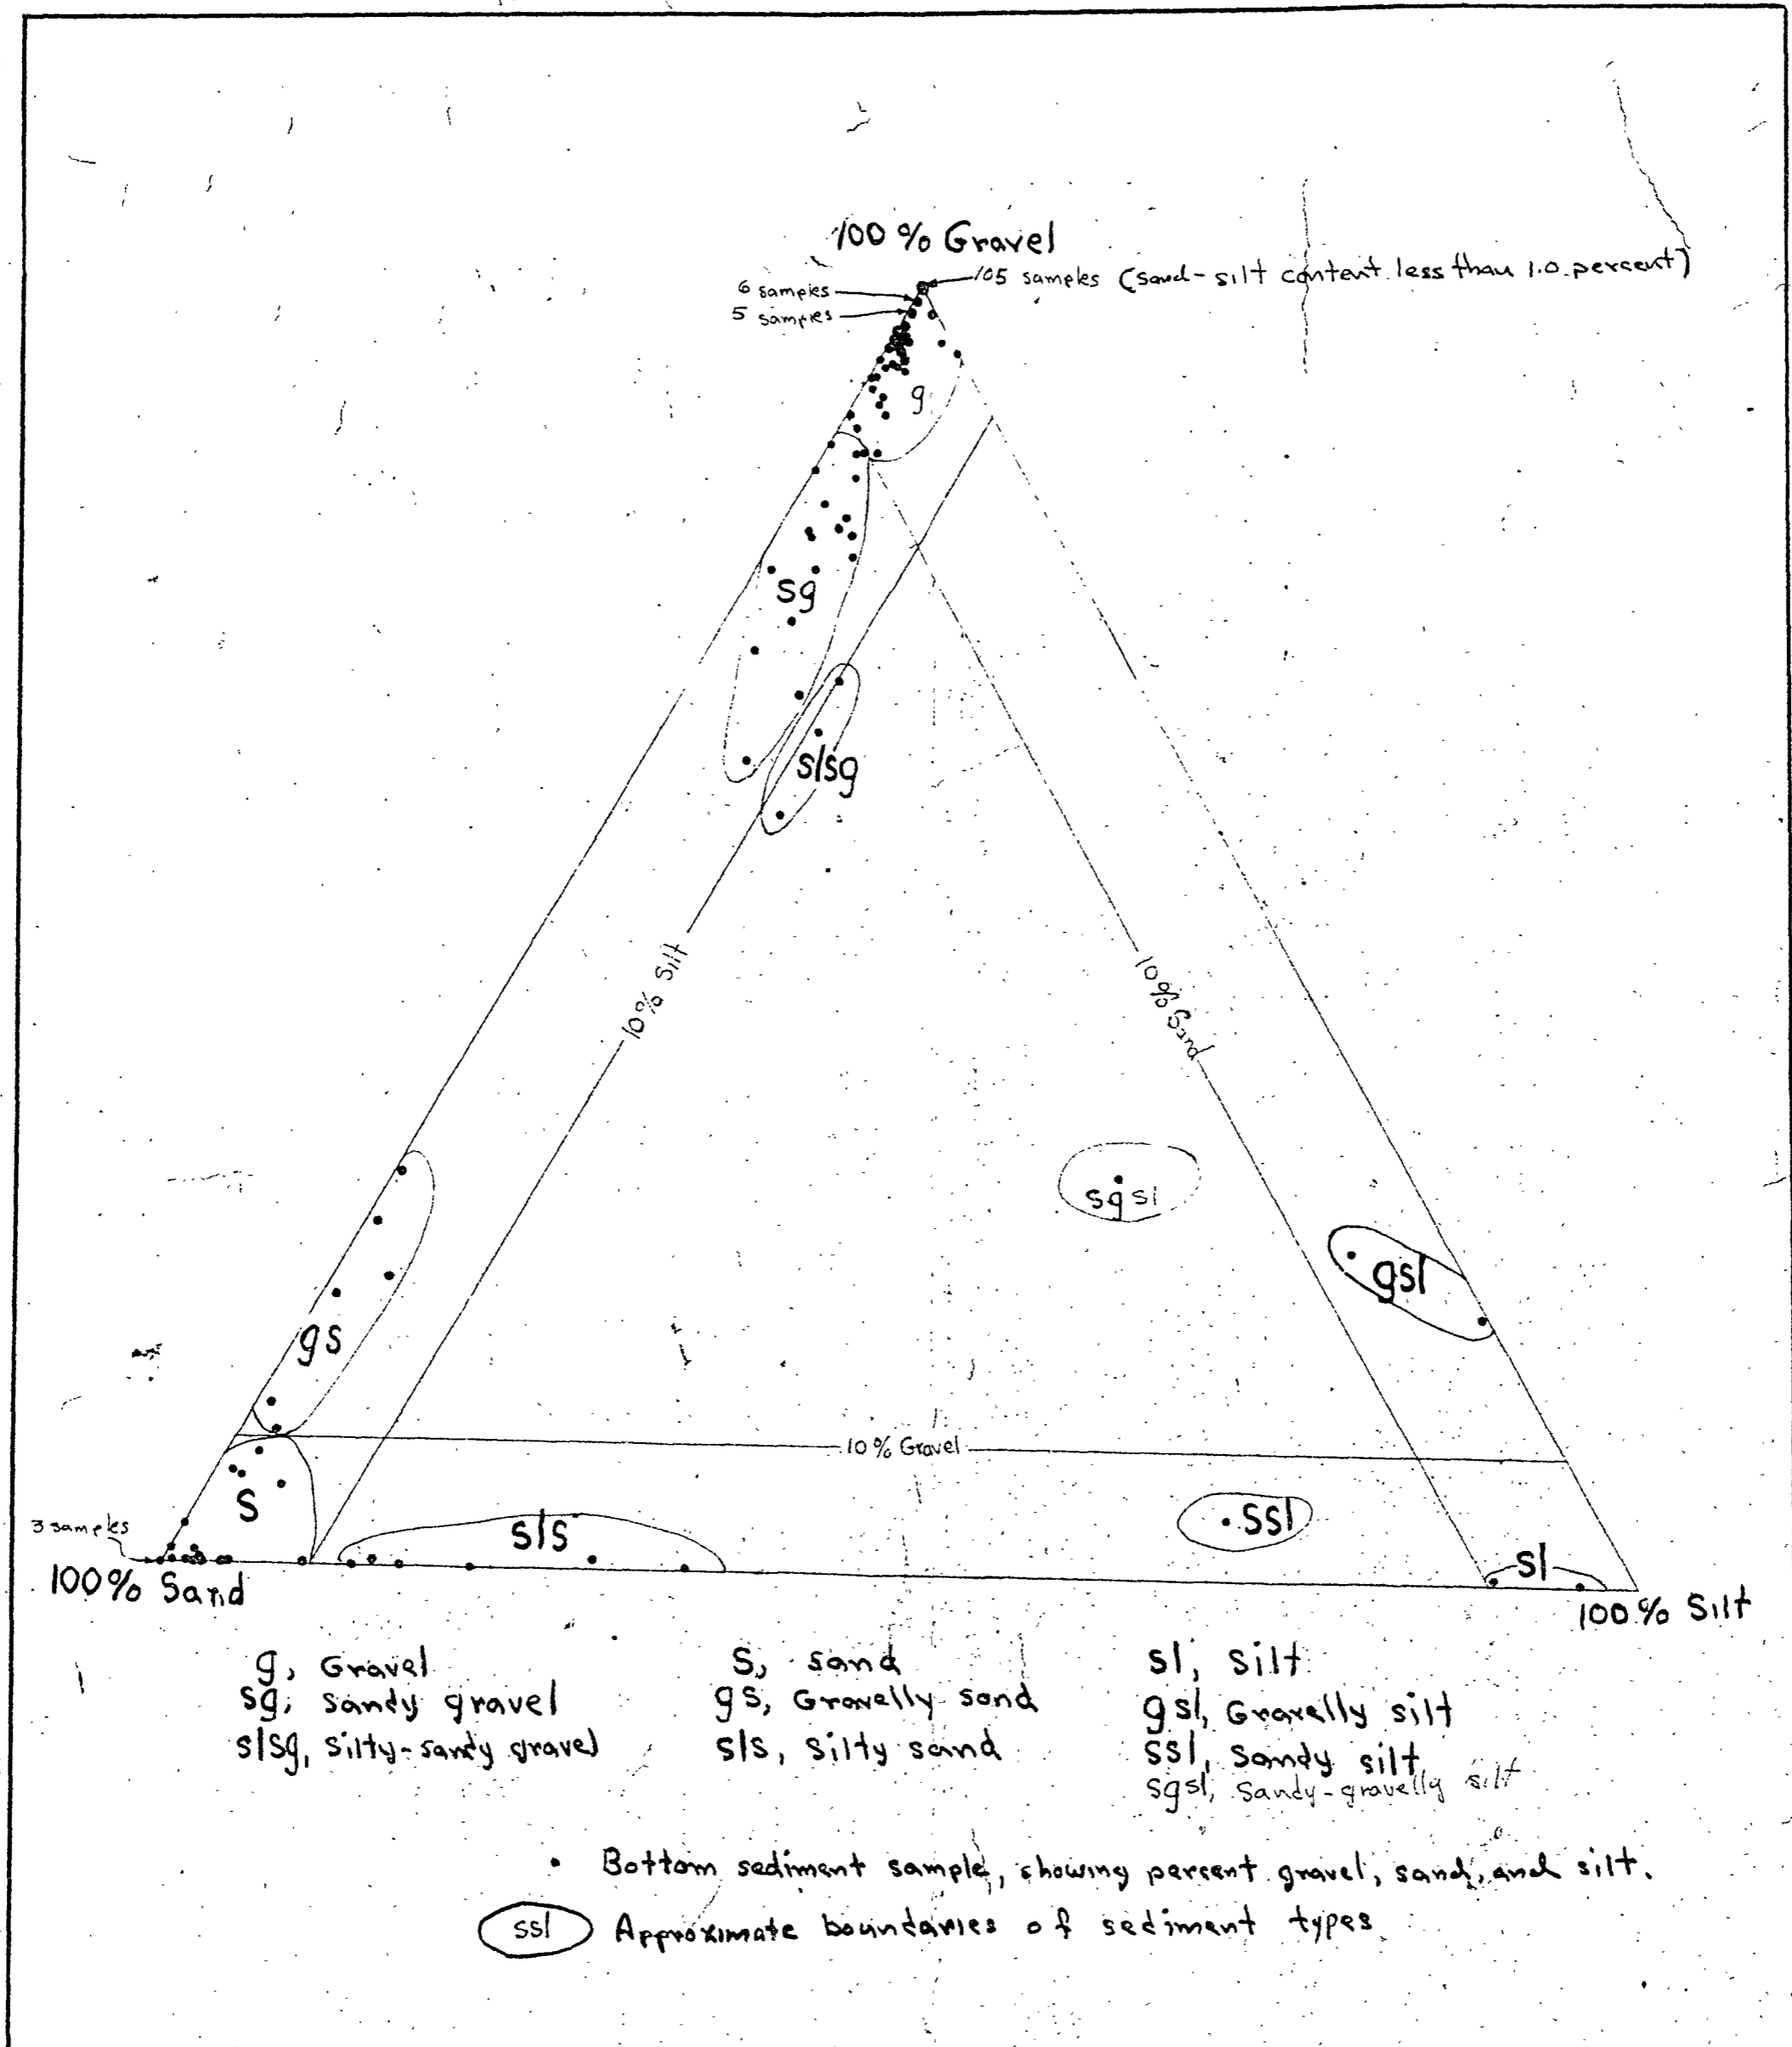 100 % Gravel
105 samples (sand-silt content less than 1.0 percent)
6 samples
5 samples
g
sg
slsg
10% Silt
10% Sand
sgsl
gsl
gs
10% Gravel
S
3 samples
sls
ssl
sl
100% Sand
100% Silt
g, Gravel
sg, Sandy gravel
slsg, Silty-sandy gravel
S, sand
gs, Gravelly sand
sls, Silty sand
sl, Silt
gsl, Gravelly silt
ssl, Sandy silt
sgsl, Sandy-gravelly silt
Bottom sediment sample, showing percent gravel, sand, and silt.
ssl Approximate boundaries of sediment types